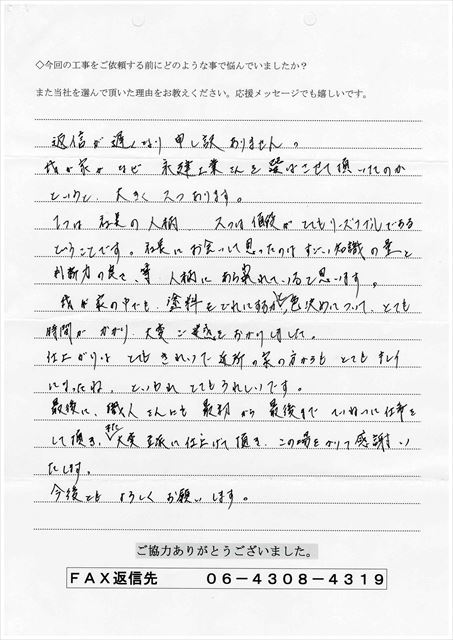 ◇今回の工事をご依頼する前にどのような事で悩んでいましたか?
また当社を選んで頂いた理由をお教えください。応援メッセージでも嬉しいです。
返信が遅くなり申し訳ありません。
我が家がなぜ 永建工業さんを選ばさせて頂いたのか
というと、大きく2つあります。
1つは社長の人柄、2つは値段がとてもリーズナブルである
ということです。社長にお会いして思ったのはすごい知識の量と
判断力の良さ、等 人柄にあらわれていると思います。
我が家の中でも、塗料をどれにするか、色決めについて、とても
時間がかかり、大変ご迷惑をおかけしました。
仕上がりは とても きれいで近所の家の方からも とても キレイ
になったね。といわれ とてもうれしいです。
最後に、職人さんにも 最初から 最後まで ていねいに仕事を
して頂き、また大変立派に仕上げて頂き、この場をかりて感謝い
たします。
今後とも よろしく お願いします。
ご協力ありがとうございました。
FAX返信先 06-4308-4319